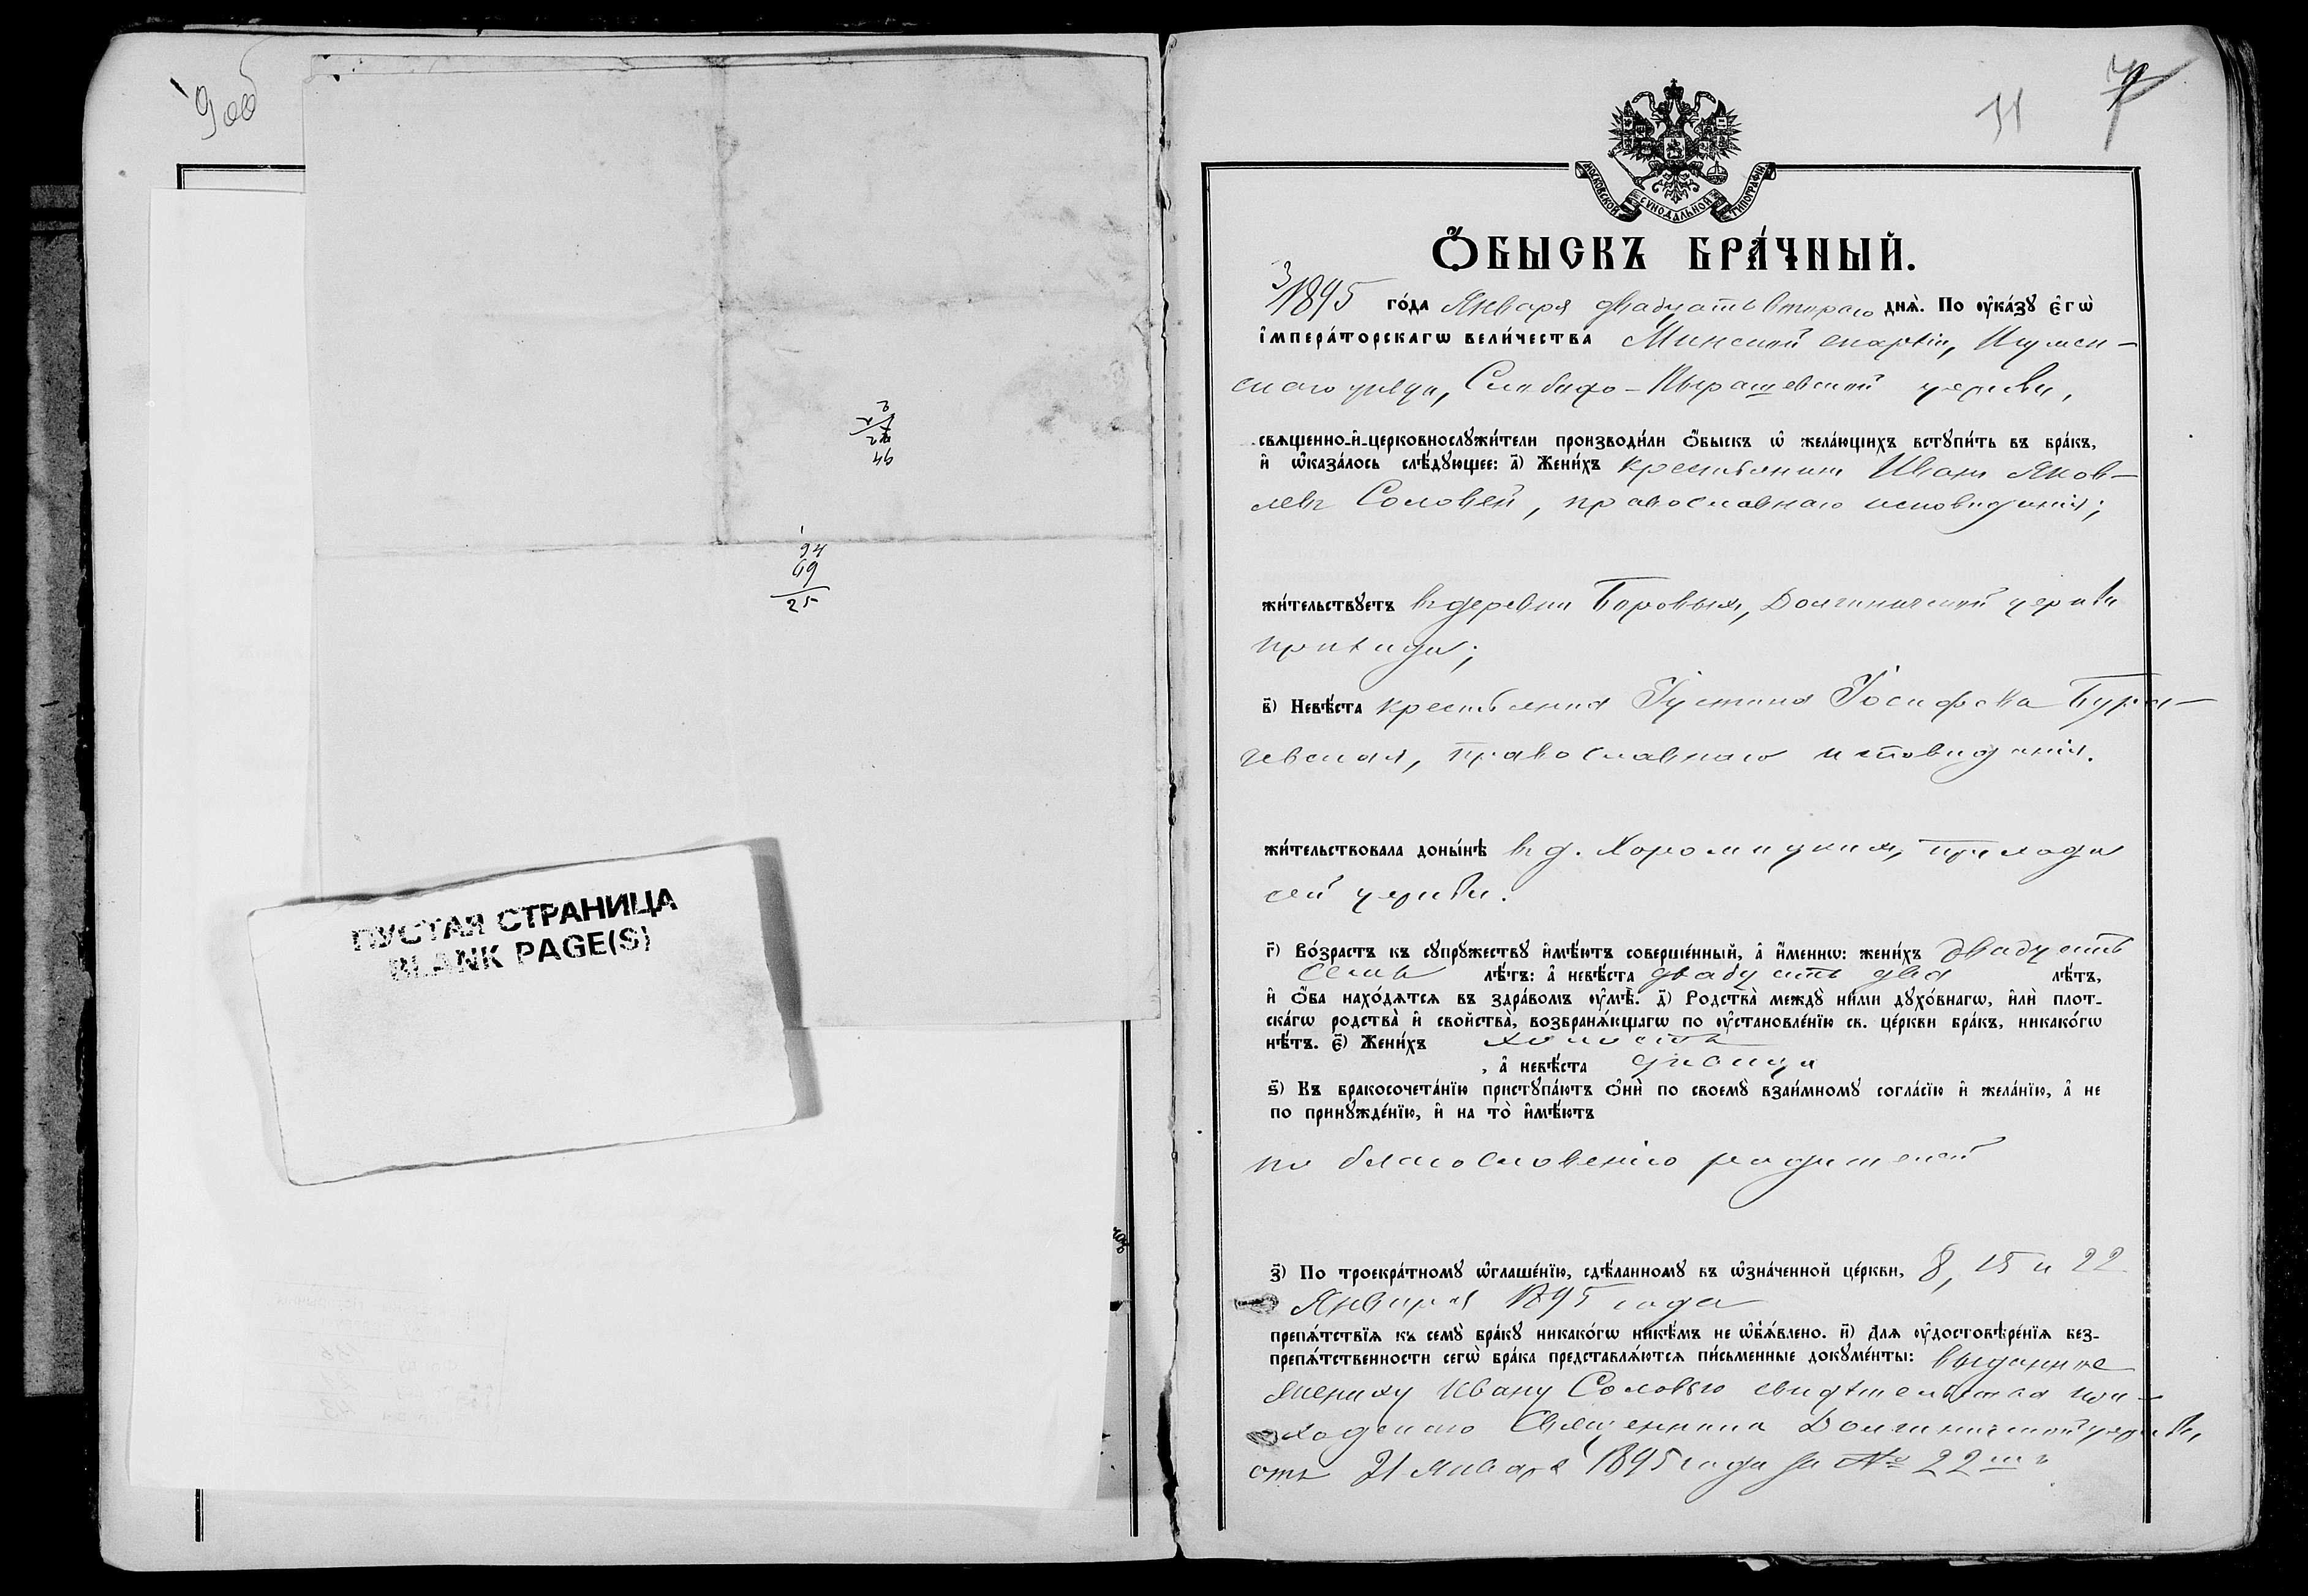 9об
2
24
46
94
69
25
ПУСТАЯ СТРАНИЦА
BLANK PAGE(S)
11
МОСКОВСКОЙ СѴНОДАЛЬНОЙ ТИПОГРАФІИ
Ѻ҆́БЫСКЪ БРА́ЧНЫЙ.
3
1895 го́да Января двадцать втораго днѧ̀. По ᲂу҆ка́зꙋ є҆гѡ̀
і҆мпера́торскагѡ вели́чества Минской епархіи, Игумен-
скаго уѣзда, Слободо-Пырашевской церкви,
свѧщенно-и҆-церковнослꙋжи́тели производи́ли ѻ҆́быскъ ѡ҆ жела́ющихъ встꙋпи́ть въ бра́къ,
и҆ ѡ҆каза́лось слѣ́дꙋющее: а҃) Жени́хъ крестьянинъ Иванъ Яков-
левъ Соловей, православнаго исповѣданія;
жи́тельствꙋетъ въ деревни Боровыхъ, Долгиничской церкви
прихода;
в҃) Невѣ́ста крестьянка Іустина Іосифова Бура-
чевская, православнаго исповѣданія.
жи́тельствовала доны́нѣ въ д. Хоромицкихъ, прихода
сей церкви.
г҃) Во́зрастъ къ сꙋпрꙋ́жествꙋ и҆мѣ́ютъ соверше́нный, а҆ и҆́меннѡ: жени́хъ двадцать
семь лѣ́тъ: а҆ невѣ́ста двадцать два лѣ́тъ,
и҆ ѻ҆́ба нахо́дѧтсѧ въ здра́вомъ ᲂу҆мѣ̀. д҃) Родства̀ междꙋ̀ ни́ми дꙋхо́внагѡ, и҆лѝ плот-
ска́гѡ родства̀ и҆ свойства̀, возбранѧ́ющагѡ по ᲂу҆становле́нїю св. це́ркви бра́къ, никако́гѡ
нѣ́тъ. є҃) Жени́хъ холостъ
, а҆ невѣ́ста дѣвица
ѕ҃) Къ бракосочета́нїю пристꙋпа́ютъ ѻ҆нѝ по своемꙋ̀ взаи́мномꙋ согла́сїю и҆ жела́нїю, а҆ не
по принꙋжде́нїю, и҆ на то̀ и҆мѣ́ютъ
по благословенію родителей
з҃) По троекра́тномꙋ ѡ҆глаше́нїю, сдѣ́ланномꙋ въ ѡ҆зна́ченной це́ркви, 8, 15 и 22
Января 1895 года
препѧ́тствїѧ къ семꙋ̀ бра́кꙋ никако́гѡ никѣ́мъ не ѡ҆б̾ѧ́влено. и҃) Длѧ ᲂу҆достовѣре́нїѧ без-
препѧ́тственности сегѡ̀ бра́ка представлѧ́ютсѧ пи́сьменные докꙋме́нты: выданное
жениху Ивану Соловью свидѣтельства при-
ходскаго Священника Долгиничской церкви,
отъ 21 Января 1895 года за № 22